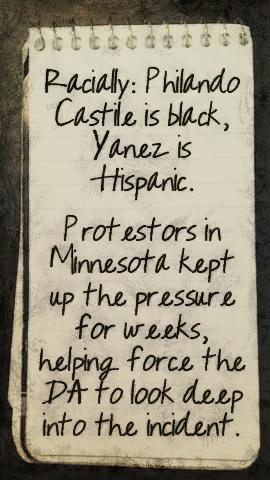 Racially: Philando
Castile is black,
Yanez is
Hispanic.
Protestors in
Minnesota kept
up the pressure
for weeks,
helping force the
DA to look deep
into the incident.